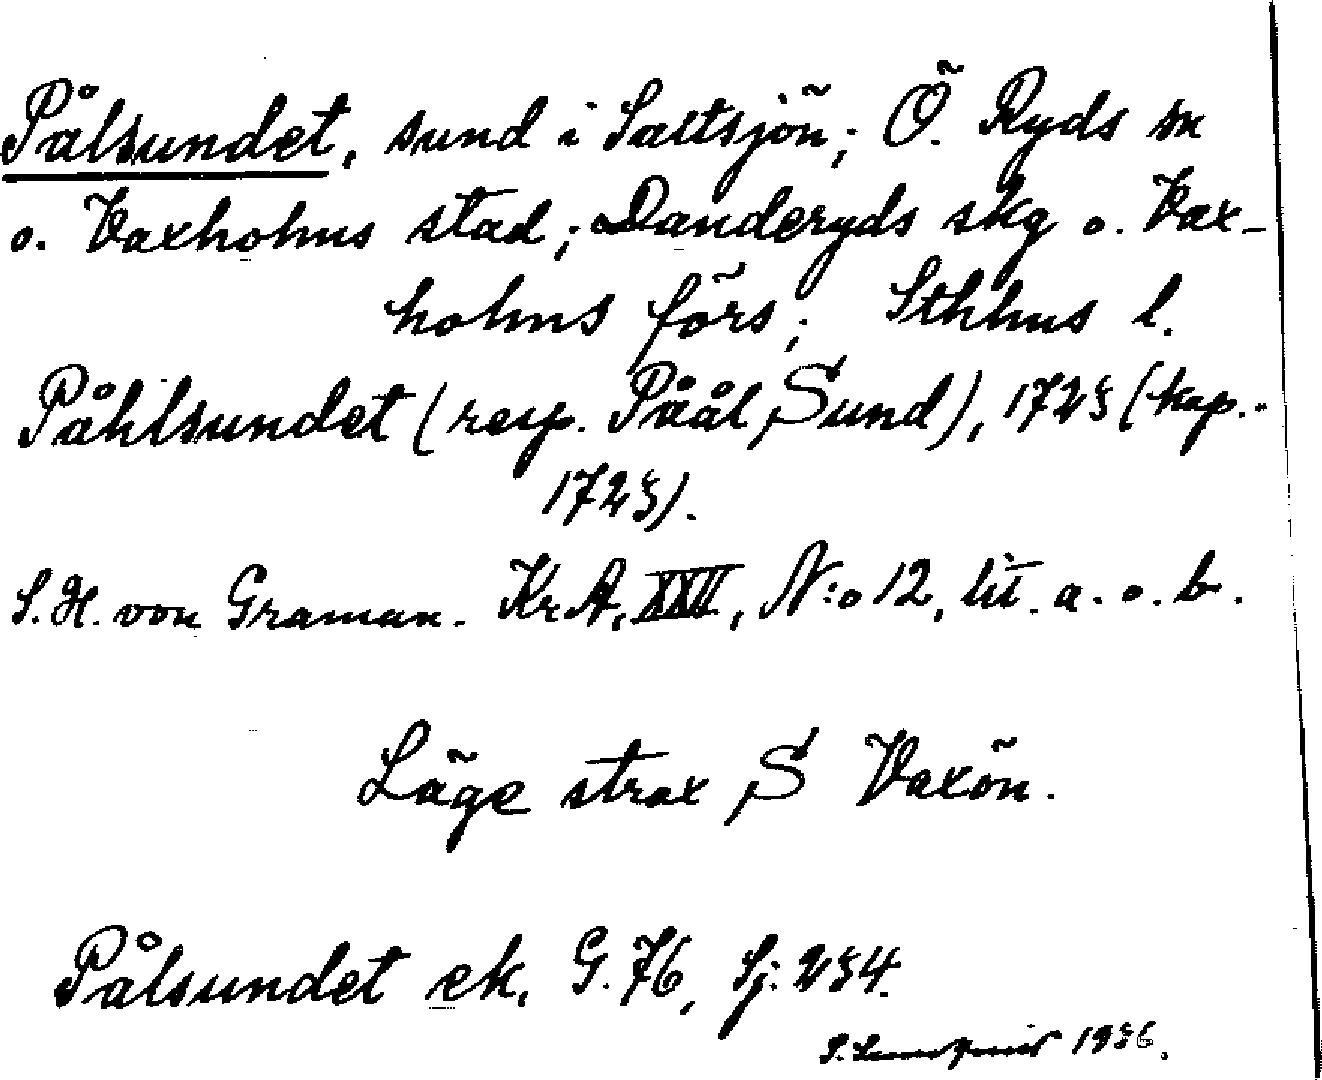 Pålsundet, sund i Saltsjön; Ö. Ryds sn
o. Vaxholms stad; Danderyds skg o. Vax-
holms förs; Sthlms l.
Påhlsundet (resp. Påål Sund), 1723 (kop.
1723).
S. H. von Graman. Kr A, XXII, N:o 12, lit. a. o. b.
Läge strax S Vaxön.
Pålsundet ek. G. 76, Sj: 234.
S. 1936.